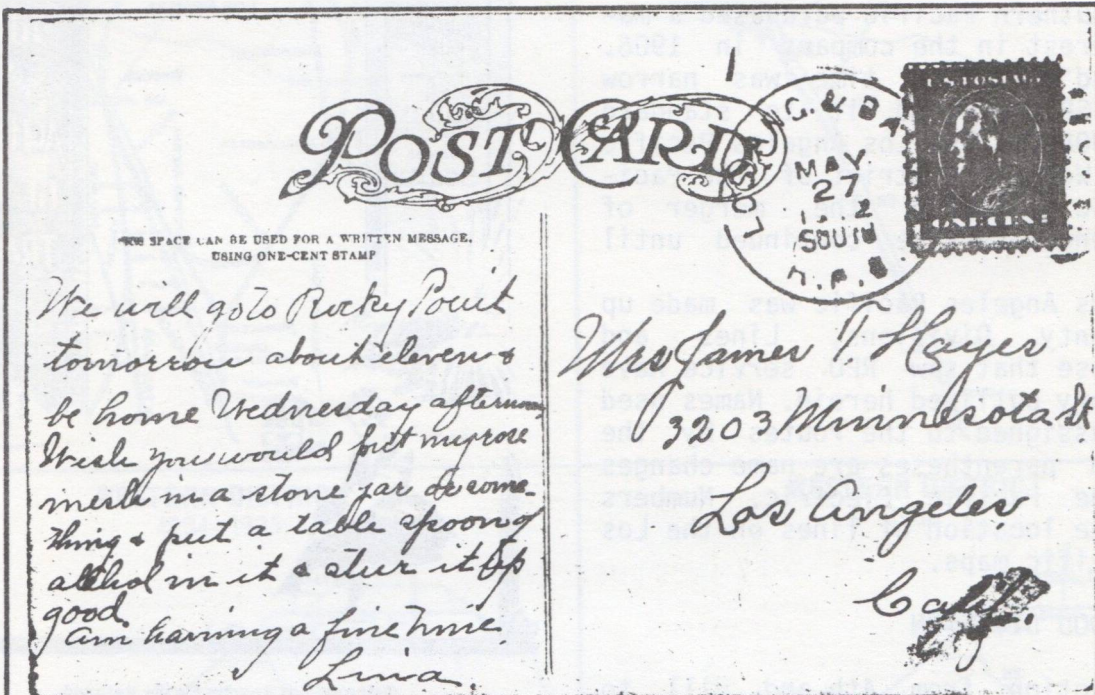 POST CARD
THIS SPACE CAN BE USED FOR A WRITTEN MESSAGE.
USING ONE-CENT STAMP
MAY
27
SOUTH
R.P.O.
U.S. POSTAGE
ONE CENT
We will go to Rocky Point
tomorrow about eleven &
be home Wednesday afternoon
Wish you would put my rose
in a stone jar or some
thing & put a table spoon of
alchol in it & stir it up
good.
Am having a fine time
Lina
Mrs James Hayes
3203 Minnesota St
Los Angeles
Calif.